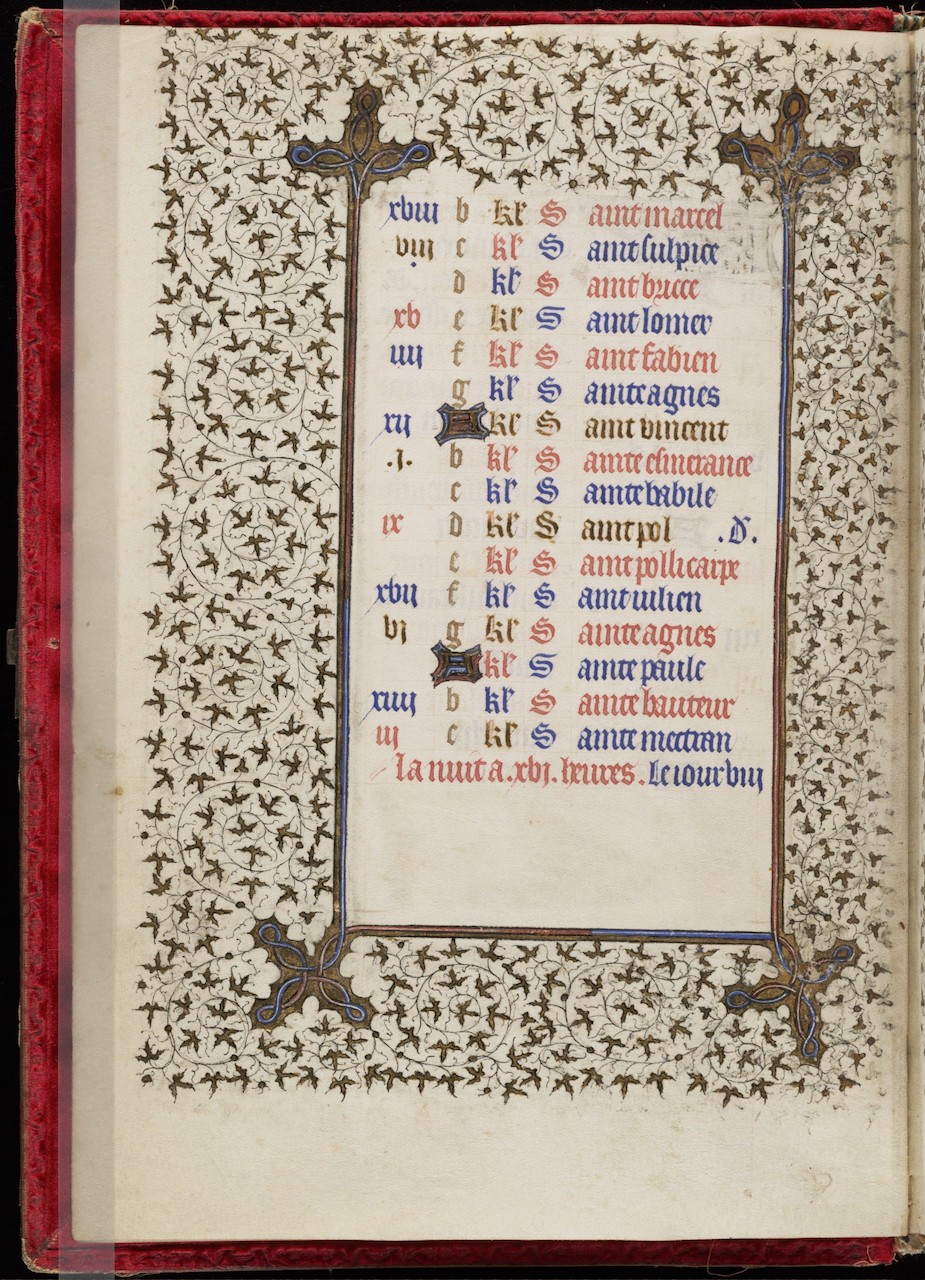 xviii b kl' S aint marcel
viij c kl' S aint sulpice
d kl' S aint bricce
xv e kl' S aint lomer
iiij f kl' S aint fabien
g kl' S ainte agnes
xij A kl' S aint vincent
.j. b kl' S ainte esmerance
c kl' S ainte babile
ix d kl' S aint pol .d'.
e kl' S aint pollicarpe
xvij f kl' S aint iulien
vj g kl' S ainte agnes
A kl' S ainte paule
xiiij b kl' S ainte bauteur
iij c kl' S ainte mectran
La nuit a .xvj. heures. Le iour viij